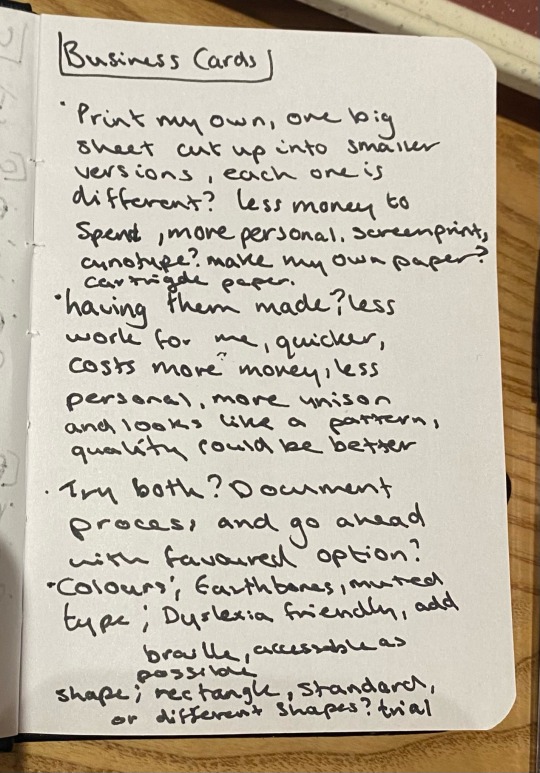 Business Cards
· Print my own, one big
sheet cut up into smaller
versions, each one is
different? less money to
spend, more personal. screenprint,
cynotype? make my own paper?
cartrigde paper.
· having them made? less
work for me, quicker,
costs more money, less
personal, more unison
and looks like a pattern,
quality could be better
· Try both? Document
process and go ahead
with favoured option?
· Colours; Earthtones, muted
type; Dyslexia friendly, add
braille, accessable as
possible
shape; rectangle, standard,
or different shapes? trial